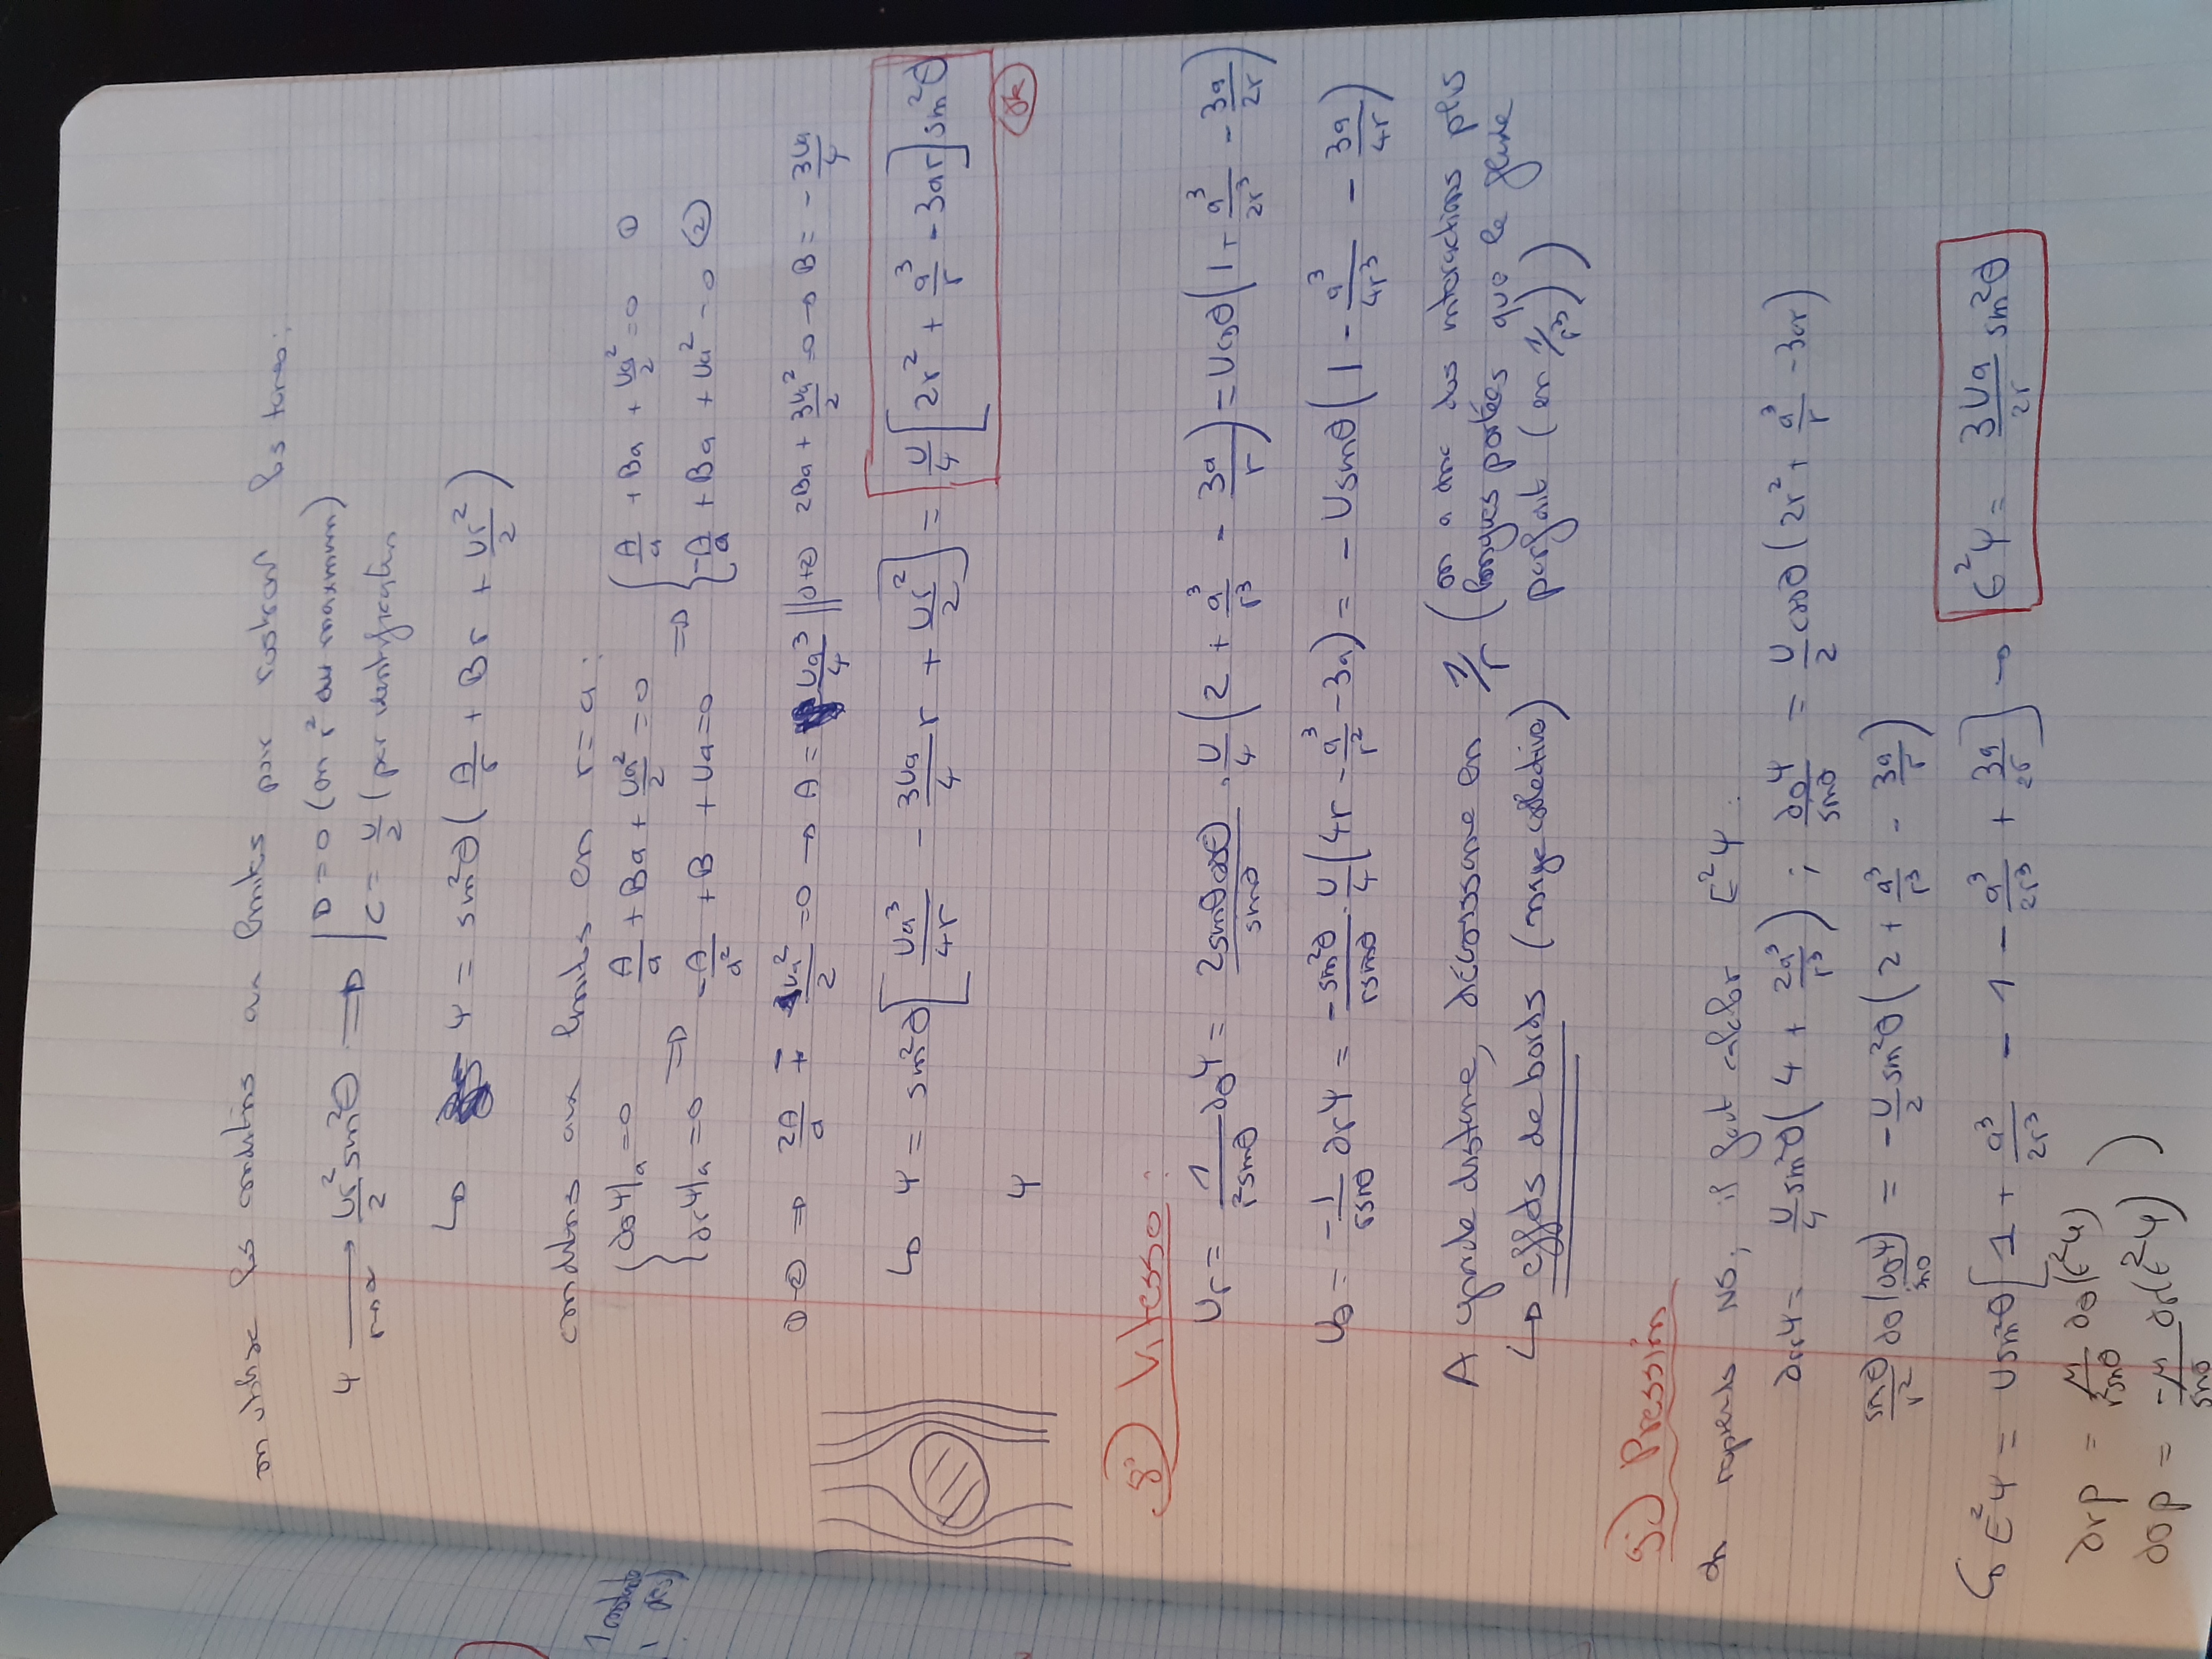 on utilise les conditions aux limites pour restreint les termes:
Ψ ⟶ (r→∞) Ur²/2 sin²θ ⇒ | D = 0 (en r² au maximum)
| C = U/2 (par identification
↳ Ψ = sin²θ ( A/r + Br + Ur²/2 )
conditions aux limites en r = a :
{ ∂θΨ|a = 0 ⇒ A/a + Ba + Ua²/2 = 0 ⇒ { A/a + Ba + Ua²/2 = 0 ①
{ ∂rΨ|a = 0 -A/a² + B + Ua = 0 { -A/a + Ba + Ua² = 0 ②
①-② ⇒ 2A/a - Ua²/2 = 0 → A = Ua³/4 || ①+② 2Ba + 3Ua²/2 = 0 → B = - 3Ua/4
↳ Ψ = sin²θ [ Ua³/4r - 3Ua/4 r + Ur²/2 ] = U/4 [ 2r² + a³/r - 3ar ] sin²θ
Ψ
8°) Vitesse :
Ur = 1/(r² sinθ) ∂θΨ = 2sinθcosθ/sinθ . U/4 ( 2 + a³/r³ - 3a/r ) = Ucosθ ( 1 + a³/2r³ - 3a/2r )
Uθ = -1/(r sinθ) ∂rΨ = -sin²θ/(r sinθ) . U/4 ( 4r - a³/r² - 3a ) = - Usinθ ( 1 - a³/4r³ - 3a/4r )
A grande distance, décroissance en 1/r ( on a donc des interactions plus
longues portées que le fluide
↳ effets de bords (nage collective) parfait (en 1/r³) )
9°) Pression
On reprends NS, il faut calculer E²Ψ :
∂rrΨ = U/4 sin²θ ( 4 + 2a³/r³ ) ; ∂θΨ/sinθ = U/2 cosθ ( 2r² + a³/r - 3ar )
sinθ/r² ∂θ ( ∂θΨ/sinθ ) = - U/2 sin²θ ( 2 + a³/r³ - 3a/r )
↳ E²Ψ = Usin²θ [ 1 + a³/2r³ - 1 - a³/2r³ + 3a/2r ] → E²Ψ = 3Ua/2r sin²θ
∂rp = μ/(r² sinθ) ∂θ(E²Ψ) )
∂θp = -μ/sinθ ∂r(E²Ψ)